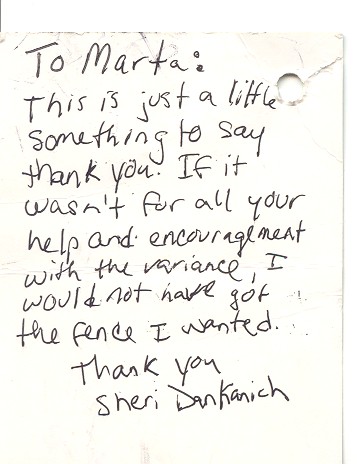 To Marta:
This is just a little
something to say
thank you. If it
wasn't for all your
help and encouragement
with the variance, I
would not have got
the fence I wanted.
Thank you
Sheri Dankanich